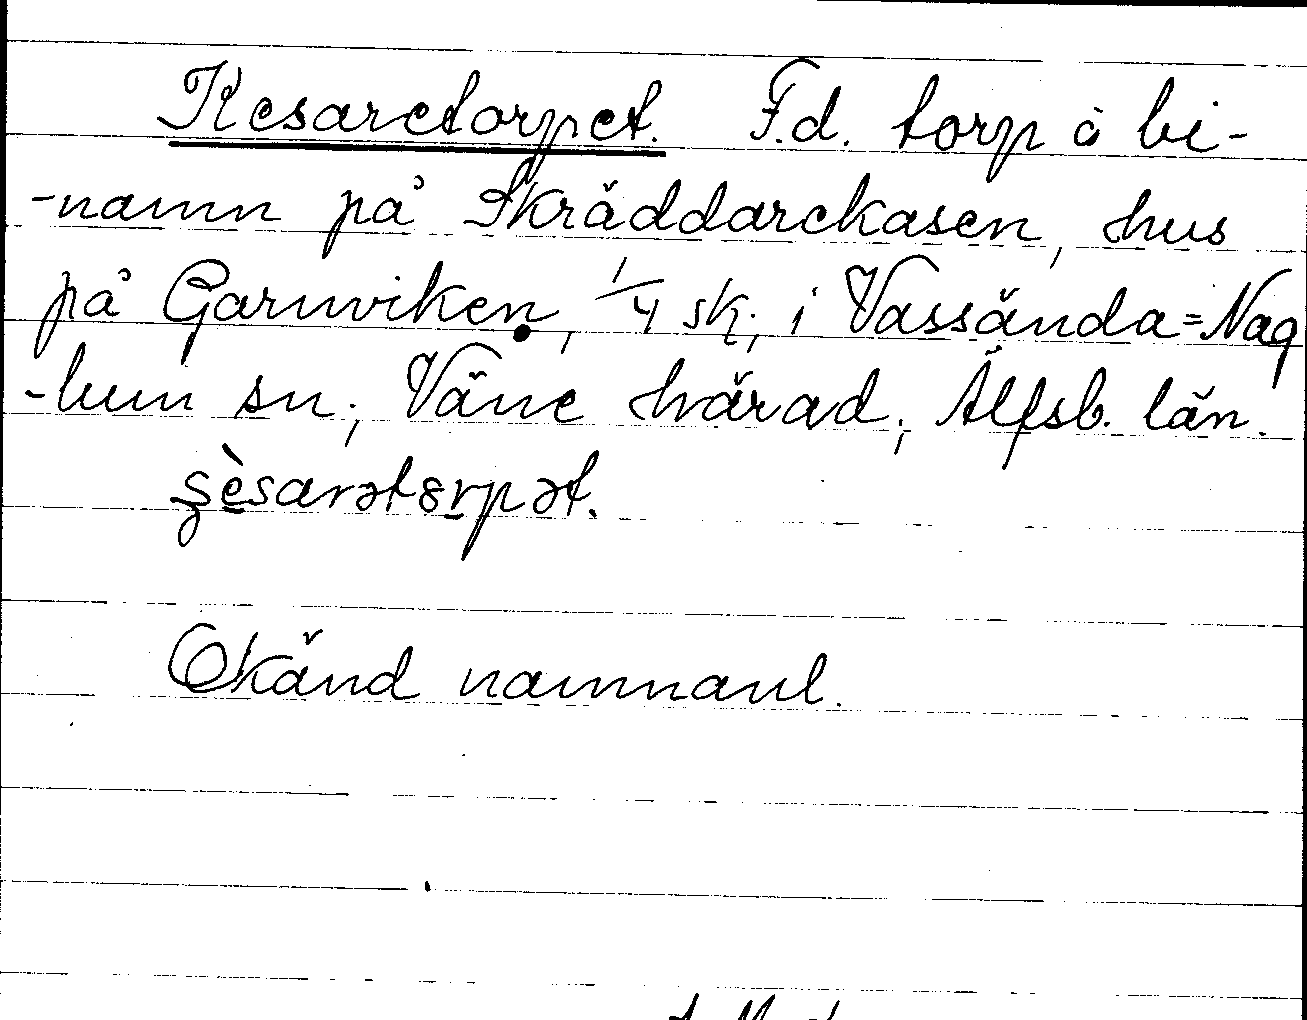 Kesaretorpet. F.d. torp å bi-
-namn på Skräddarekasen, hus
på Garnviken, 1/4 sk; i Vassända=Nag
-lum sn; Väne härad; Älfsb. län.
Okänd namnanl.